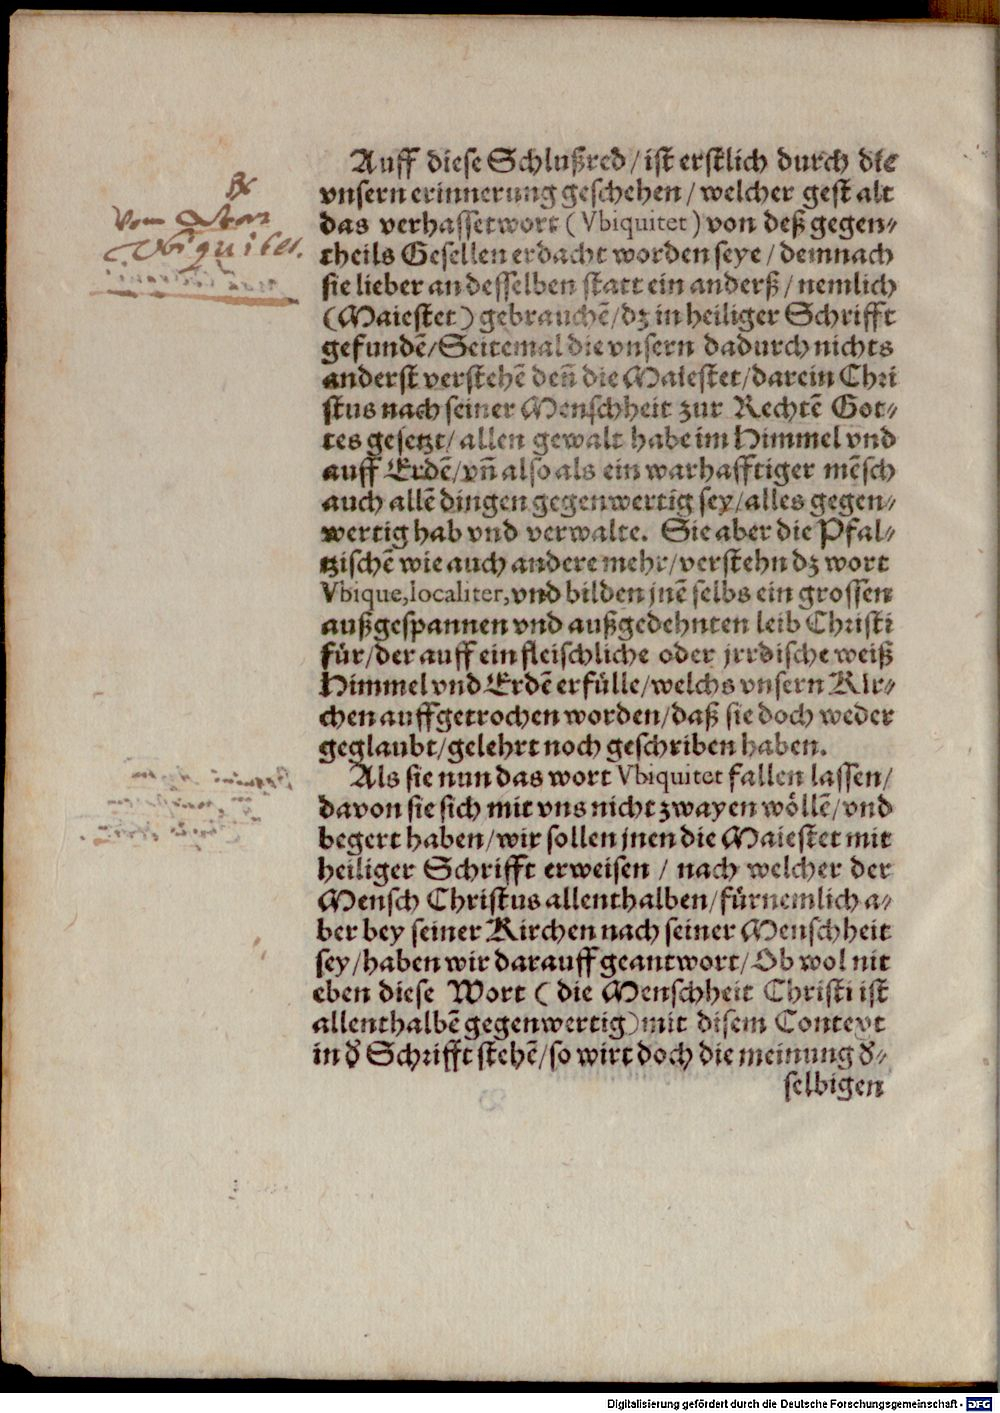 Auff diese Schlußred / ist erstlich durch die
vnsern erinnerung geschehen / welcher gestalt
das verhasset wort ( Vbiquitet ) von deß gegen⸗
theils Gesellen erdacht worden seye / demnach
sie lieber an desselben statt ein anderß / nemlich
(Maiestet) gebrauchẽ/dz in heiliger Schrifft
gefundẽ/Seitemal die vnsern dadurch nichts
anderst verstehẽ deñ die Maiestet/darein Chri
stus nach seiner Menschheit zur Rechtẽ Got⸗
tes gesetzt/ allen gewalt habe im Himmel vnd
auff Erdẽ/vñ also als ein warhafftiger mẽsch
auch allẽ dingen gegenwertig sey/alles gegen⸗
wertig hab vnd verwalte. Sie aber die Pfal⸗
tzischẽ wie auch andere mehr/verstehn dz wort
Vbique,localiter,vnd bilden jnẽ selbs ein grossen
außgespannen vnd außgedehnten leib Christi
für/der auff ein fleischliche oder jrrdische weiß
Himmel vnd Erdẽ erfülle/welchs vnsern Kir⸗
chen auffgetrochen worden/daß sie doch weder
geglaubt/gelehrt noch geschriben haben.
Als sie nun das wort Vbiquitet fallen lassen/
davon sie sich mit vns nicht zwayen wöllẽ/vnd
begert haben/wir sollen jnen die Maiestet mit
heiliger Schrifft erweisen / nach welcher der
Mensch Christus allenthalben/fürnemlich a⸗
ber bey seiner Kirchen nach seiner Menschheit
sey/haben wir darauff geantwort/Ob wol nit
eben diese Wort ( die Menschheit Christi ist
allenthalbẽ gegenwertig) mit disem Context
in d̃ Schrifft stehẽ/so wirt doch die meinung d̃⸗
selbigen
Vom
Vbiquitet.
Digitalisierung gefördert durch die Deutsche Forschungsgemeinschaft - DFG